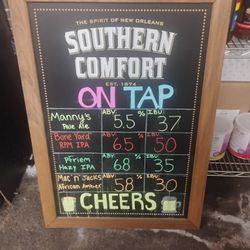 THE SPIRIT OF NEW ORLEANS
SOUTHERN
COMFORT
EST. 1874
ON TAP
Manny's Pale Ale ABV 55 % IBU 37
Bone Yard RPM IPA ABV 65 % IBU 50
Pfriem Hazy IPA ABV 68 % IBU 35
Mac n' Jacks African Amber ABV 58 % IBU 30
CHEERS